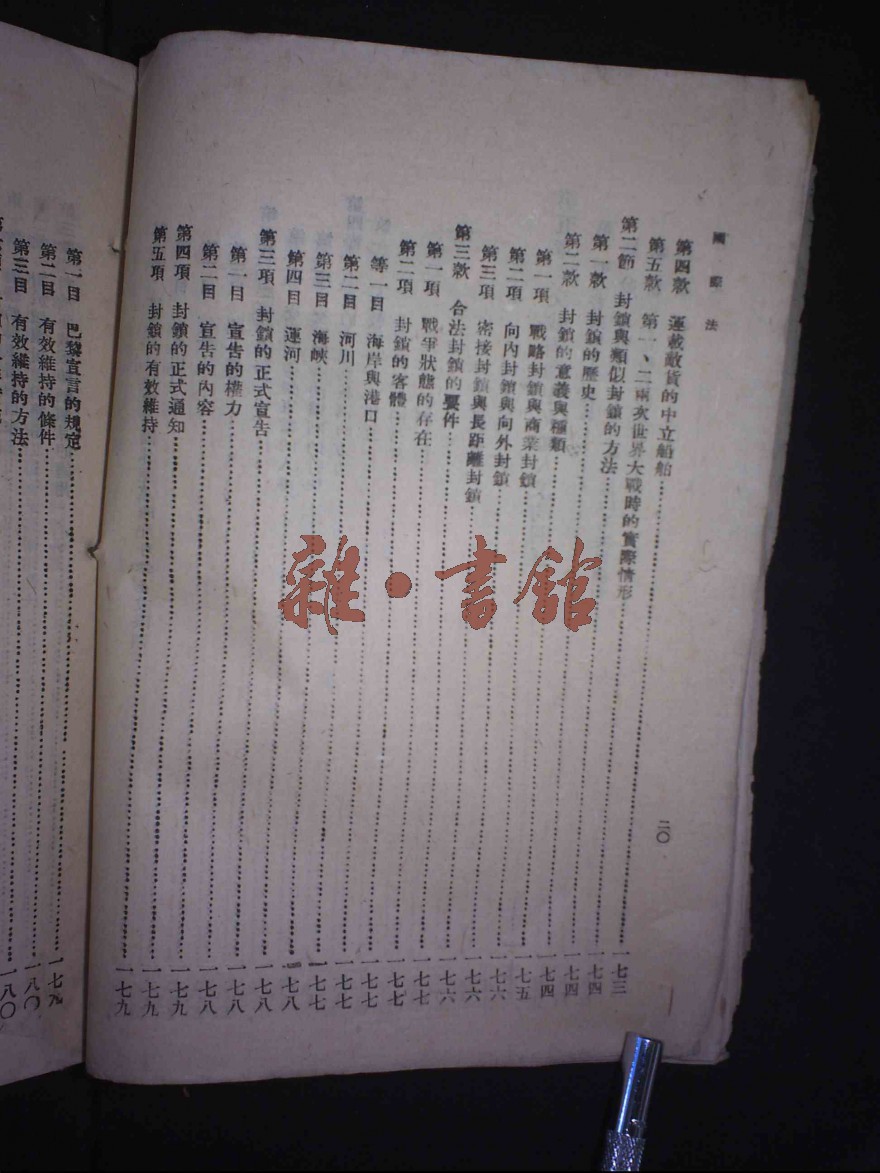 國際法
二〇
第四款 運載敵貨的中立船舶……一七三
第五款 第一、二兩次世界大戰時的實際情形……一七四
第二節 封鎖與類似封鎖的方法……一七四
第一款 封鎖的歷史……一七四
第二款 封鎖的意義與種類……一七五
第一項 戰略封鎖與商業封鎖……一七六
第二項 向內封鎖與向外封鎖……一七六
第三項 密接封鎖與長距離封鎖……一七六
第三款 合法封鎖的要件……一七七
第一項 戰爭狀態的存在……一七七
第二項 封鎖的客體……一七七
等一目 海岸與港口……一七七
第二目 河川……一七七
第三目 海峽……一七八
第四目 運河……一七八
第三項 封鎖的正式宣告……一七八
第一目 宣告的權力……一七八
第二目 宣告的內容……一七九
第四項 封鎖的正式通知……一七九
第五項 封鎖的有效維持……一七九
第一目 巴黎宣言的規定……一七九
第二目 有效維持的條件……一八〇
第三目 有效維持的方法……一八〇
雜·書館